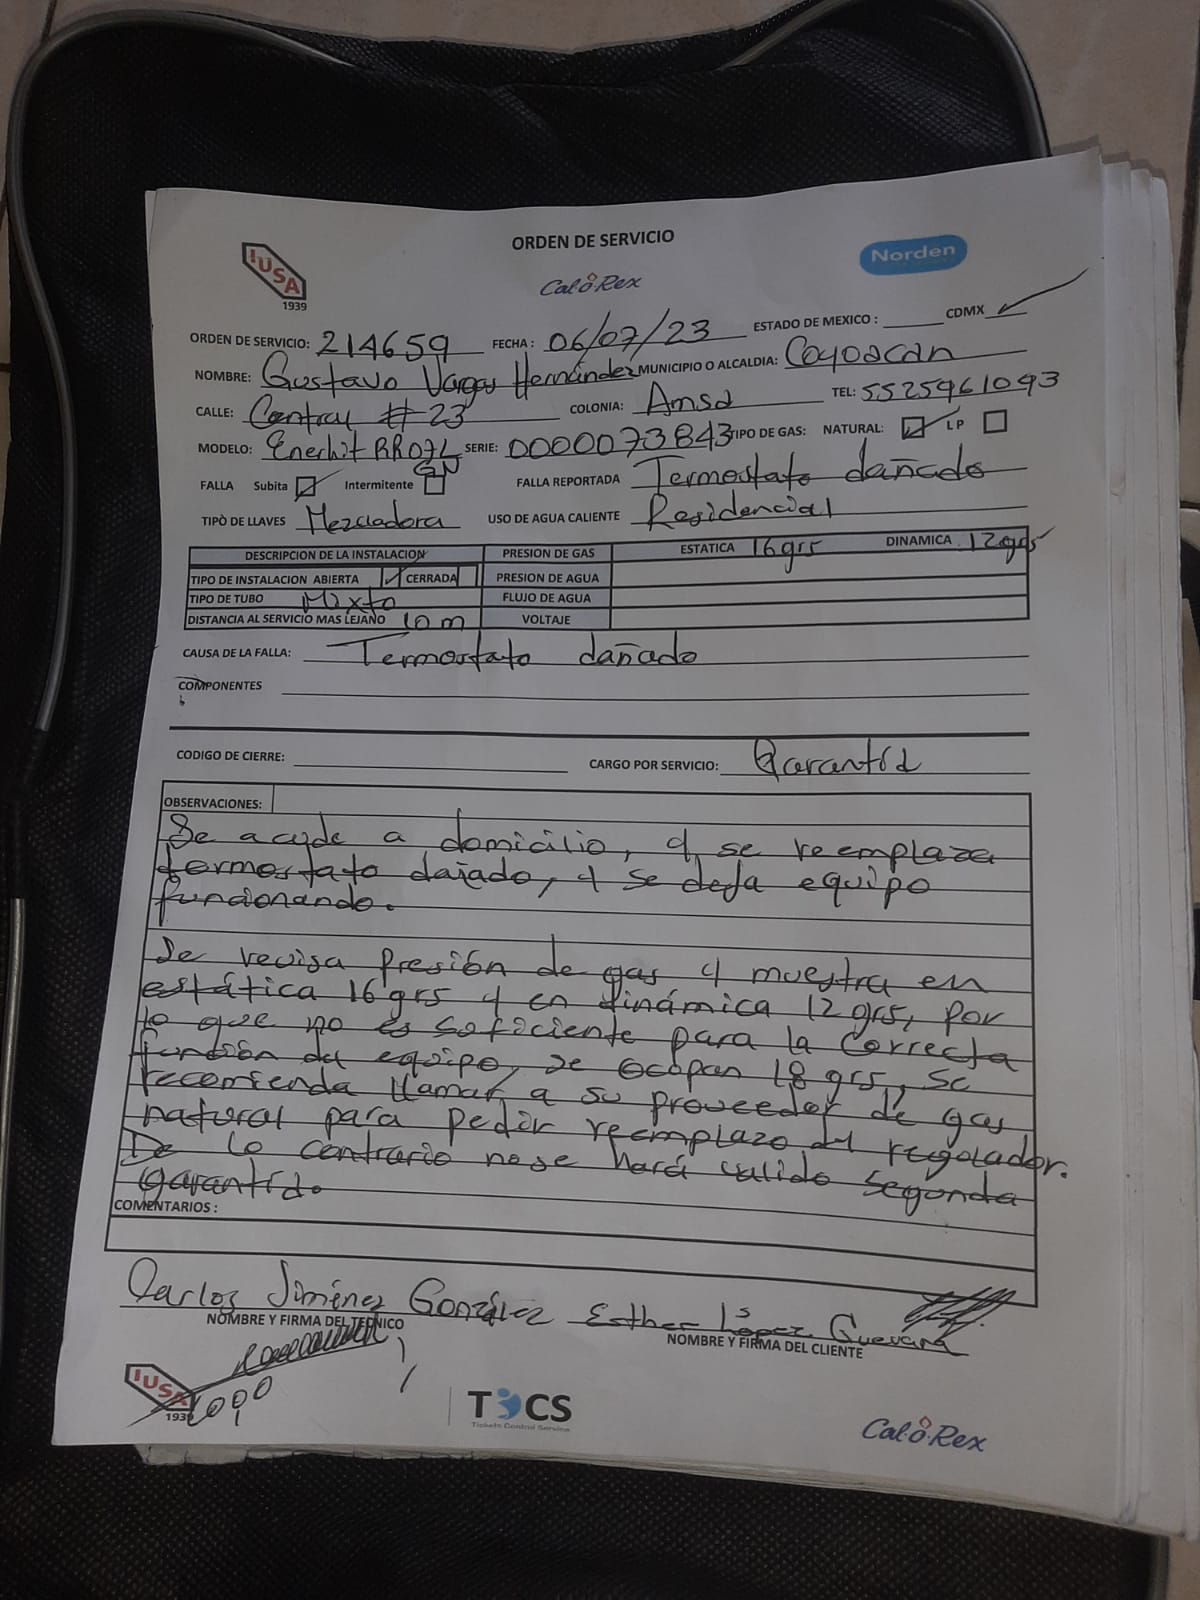 ORDEN DE SERVICIO
IUSA
1939
Cal·o·Rex
Norden
ORDEN DE SERVICIO: 214659 FECHA: 06/07/23 ESTADO DE MEXICO: CDMX
NOMBRE: Gustavo Vargas Hernández MUNICIPIO O ALCALDIA: Coyoacan
CALLE: Central # 23 COLONIA: Amsa TEL: 5525961093
MODELO: Enerhit RR07L GN SERIE: 0000073843 TIPO DE GAS: NATURAL: LP
FALLA Subita Intermitente FALLA REPORTADA Termostato dañado
TIPÒ DE LLAVES Mezcladora USO DE AGUA CALIENTE Residencial
DESCRIPCION DE LA INSTALACION PRESION DE GAS ESTATICA 16grs DINAMICA 12grs
TIPO DE INSTALACION ABIERTA CERRADA PRESION DE AGUA
TIPO DE TUBO Mixto FLUJO DE AGUA
DISTANCIA AL SERVICIO MAS LEJANO 10 m VOLTAJE
CAUSA DE LA FALLA: Termostato dañado
COMPONENTES
CODIGO DE CIERRE: CARGO POR SERVICIO: Garantía
OBSERVACIONES:
Se acude a domicilio, y se reemplaza
termostato dañado, y se deja equipo
funcionando.
Se revisa Presión de gas y muestra en
estática 16grs y en dinámica 12grs, por
lo que no es suficiente para la correcta
función del equipo, se ocupan 18grs, se
recomienda llamar a su proveedor de gas
natural para pedir reemplazo del regulador.
De lo contrario no se hará valido segunda
garantía.
COMENTARIOS:
Carlos Jiménez González Esther López Guevara
NOMBRE Y FIRMA DEL TECNICO NOMBRE Y FIRMA DEL CLIENTE
IUSA
TOCS
Tickets Control Service
Cal·o·Rex